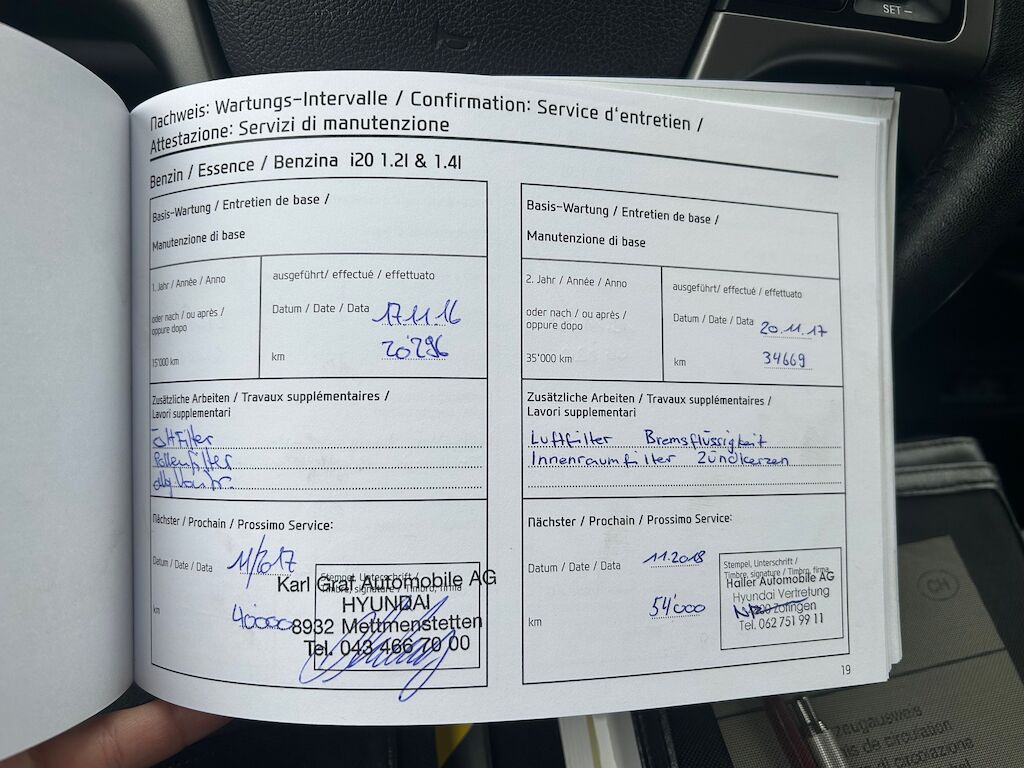 SET –
Nachweis: Wartungs-Intervalle / Confirmation: Service d'entretien /
Attestazione: Servizi di manutenzione
Benzin / Essence / Benzina i20 1.2l & 1.4l
Basis-Wartung / Entretien de base /
Manutenzione di base
1. Jahr / Année / Anno
ausgeführt/ effectué / effettuato
oder nach / ou après /
oppure dopo
Datum / Date / Data 17.11.16
15'000 km
km 20'296
Zusätzliche Arbeiten / Travaux supplémentaires /
Lavori supplementari
Pollenfilter
Nächster / Prochain / Prossimo Service:
Datum / Date / Data 11/2017
km 40000
Stempel, Unterschrift /
Timbre, signature / Timbro, firma
Karl Graf Automobile AG
HYUNDAI
8932 Mettmenstetten
Tel. 043 466 70 00
Basis-Wartung / Entretien de base /
Manutenzione di base
2. Jahr / Année / Anno
ausgeführt/ effectué / effettuato
oder nach / ou après /
oppure dopo
Datum / Date / Data 20.11.17
35'000 km
km 34669
Zusätzliche Arbeiten / Travaux supplémentaires /
Lavori supplementari
Luftfilter Bremsflüssigkeit
Innenraumfilter Zündkerzen
Nächster / Prochain / Prossimo Service:
Datum / Date / Data 11.2018
km 54'000
Stempel, Unterschrift /
Timbre, signature / Timbro, firma
Haller Automobile AG
Hyundai Vertretung
Zofingen
Tel. 062 751 99 11
19
CH
zeugausweis
is de circulation
di circolazione